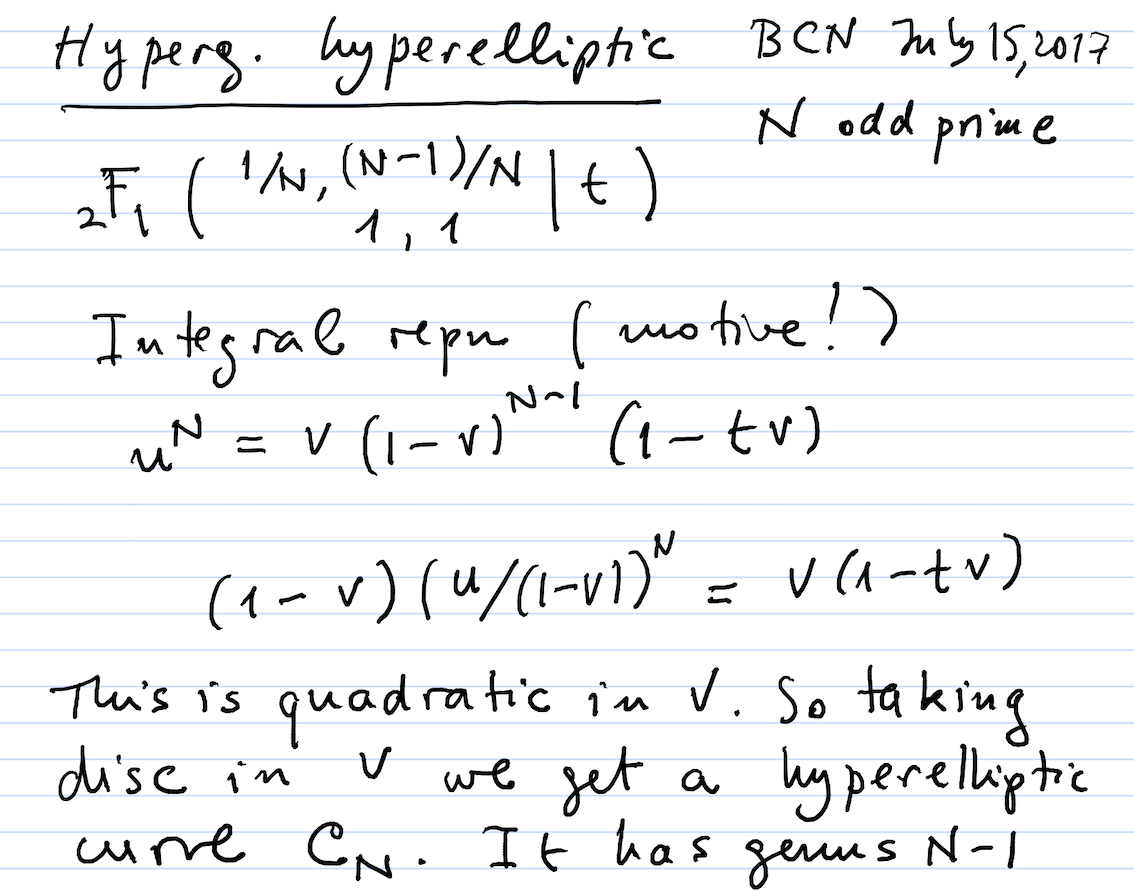 Hyperg. hyperelliptic BCN July 15, 2017
N odd prime
₂F₁ ( 1/N, (N-1)/N | t )
1, 1
Integral repn (motive!)
u^N = v (1-v)^{N-1} (1-tv)
(1-v) (u/(1-v))^N = v(1-tv)
This is quadratic in v. So taking
disc in v we get a hyperelliptic
curve C_N. It has genus N-1